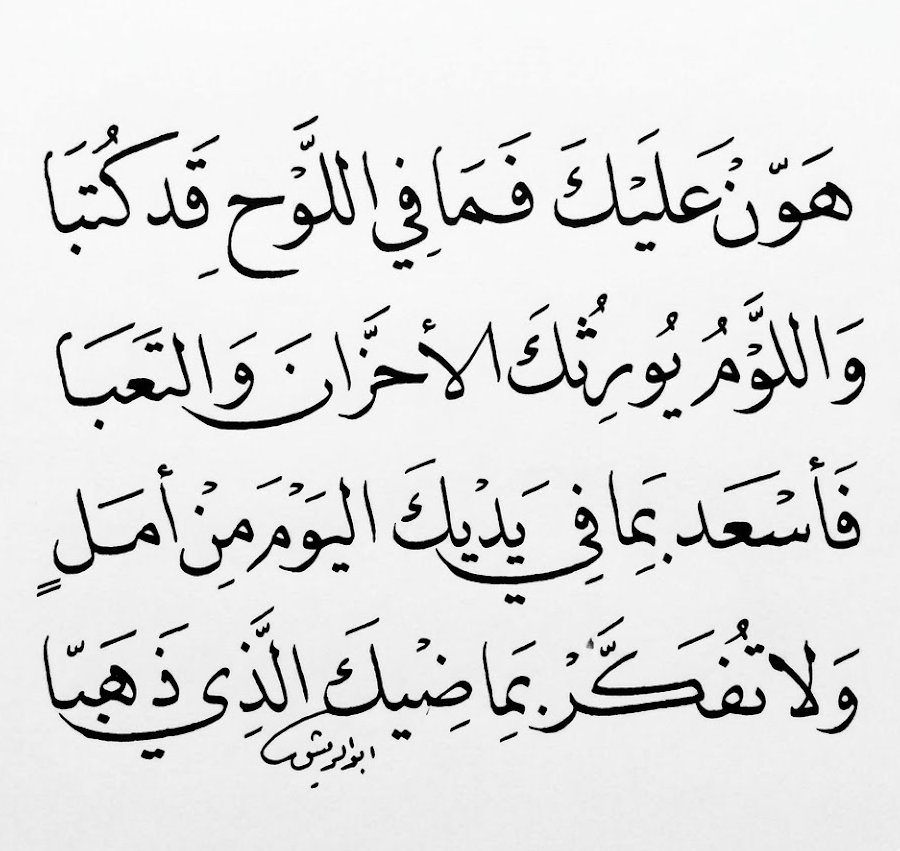 هَوِّنْ عَلَيْكَ فَمَا فِي اللَّوْحِ قَد كُتِبَا
وَاللَّوْمُ يُورِثُكَ الأحْزَانَ وَالتَعَبَا
فَأسْعَد بِمَا فِي يَدَيْكَ اليَوْمَ مِنْ أمَلٍ
وَلا تُفَكِّرْ بِمَاضِيْكَ الَّذِي ذَهَبَا
ابوالريش